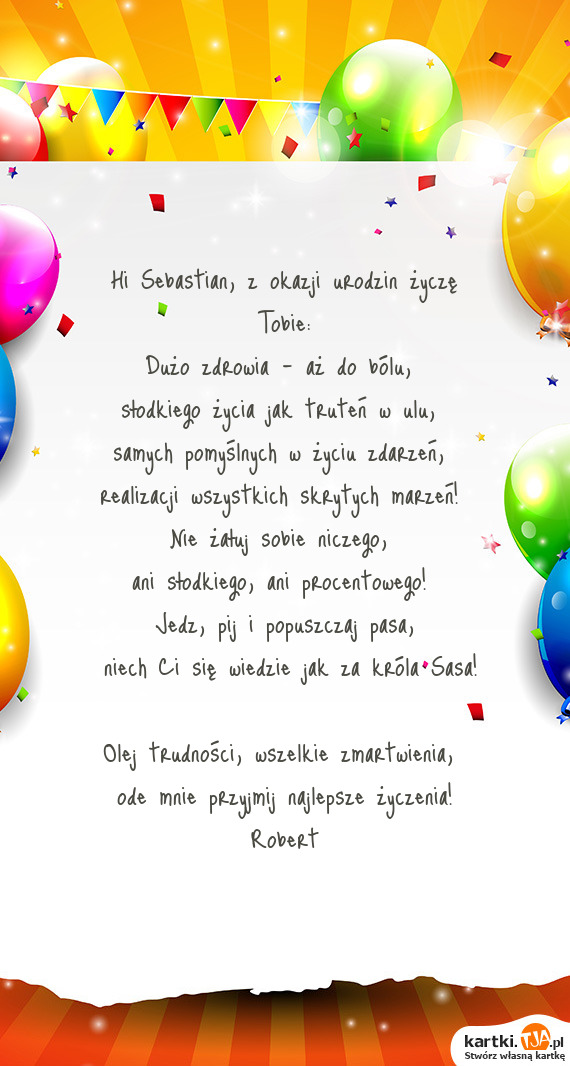 Hi Sebastian, z okazji urodzin życzę
Tobie:
Dużo zdrowia - aż do bólu,
słodkiego życia jak truteń w ulu,
samych pomyślnych w życiu zdarzeń,
realizacji wszystkich skrytych marzeń!
Nie żałuj sobie niczego,
ani słodkiego, ani procentowego!
Jedz, pij i popuszczaj pasa,
niech Ci się wiedzie jak za króla Sasa!
Olej trudności, wszelkie zmartwienia,
ode mnie przyjmij najlepsze życzenia!
Robert
kartki.TJA.pl
Stwórz własną kartkę